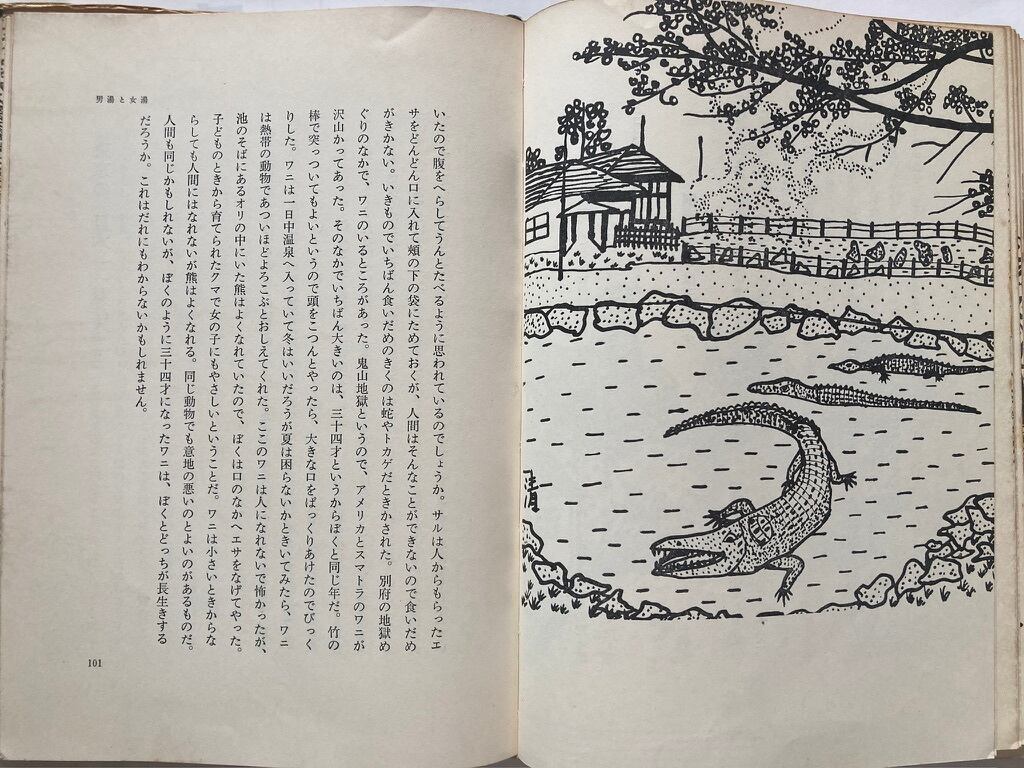 男湯と女湯
いたので腹をへらしてうんとたべるように思われているのでしょうか。サルは人からもらったエ
サをどんどん口に入れて頬の下の袋にためておくが、人間はそんなことができないので食いだめ
がきかない。いきものでいちばん食いだめのきくのは蛇やトカゲだときかされた。別府の地獄め
ぐりのなかで、ワニのいるところがあった。鬼山地獄というので、アメリカとスマトラのワニが
沢山かってあった。そのなかでいちばん大きいのは、三十四才というからぼくと同じ年だ。竹の
棒で突っついてもよいというので頭をこつんとやったら、大きな口をぱっくりあけたのでびっく
りした。ワニは一日中温泉へ入っていて冬はいいだろうが夏は困らないかときいてみたら、ワニ
は熱帯の動物であついほどよろこぶとおしえてくれた。ここのワニは人になれないで怖かったが、
池のそばにあるオリの中にいた熊はよくなれていたので、ぼくは口のなかへエサをなげてやった。
子どものときから育てられたクマで女の子にもやさしいということだ。ワニは小さいときからな
らしても人間にはなれないが熊はよくなれる。同じ動物でも意地の悪いのとよいのがあるものだ。
人間も同じかもしれないが、ぼくのように三十四才になったワニは、ぼくとどっちが長生きする
だろうか。これはだれにもわからないかもしれません。
101
清